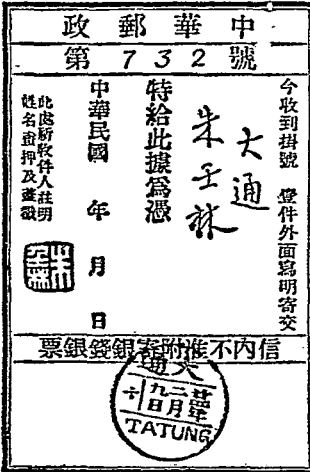 中華郵政
第732號
今收到掛號 壹件外面寫明寄交
大通
朱壬林
特給此據為憑
中華民國 年 月 日
此處須收件人註明
姓名畫押及蓋戳
信內不准附寄銀錢銀票
大通
廿 年
二月
九日
TATUNG